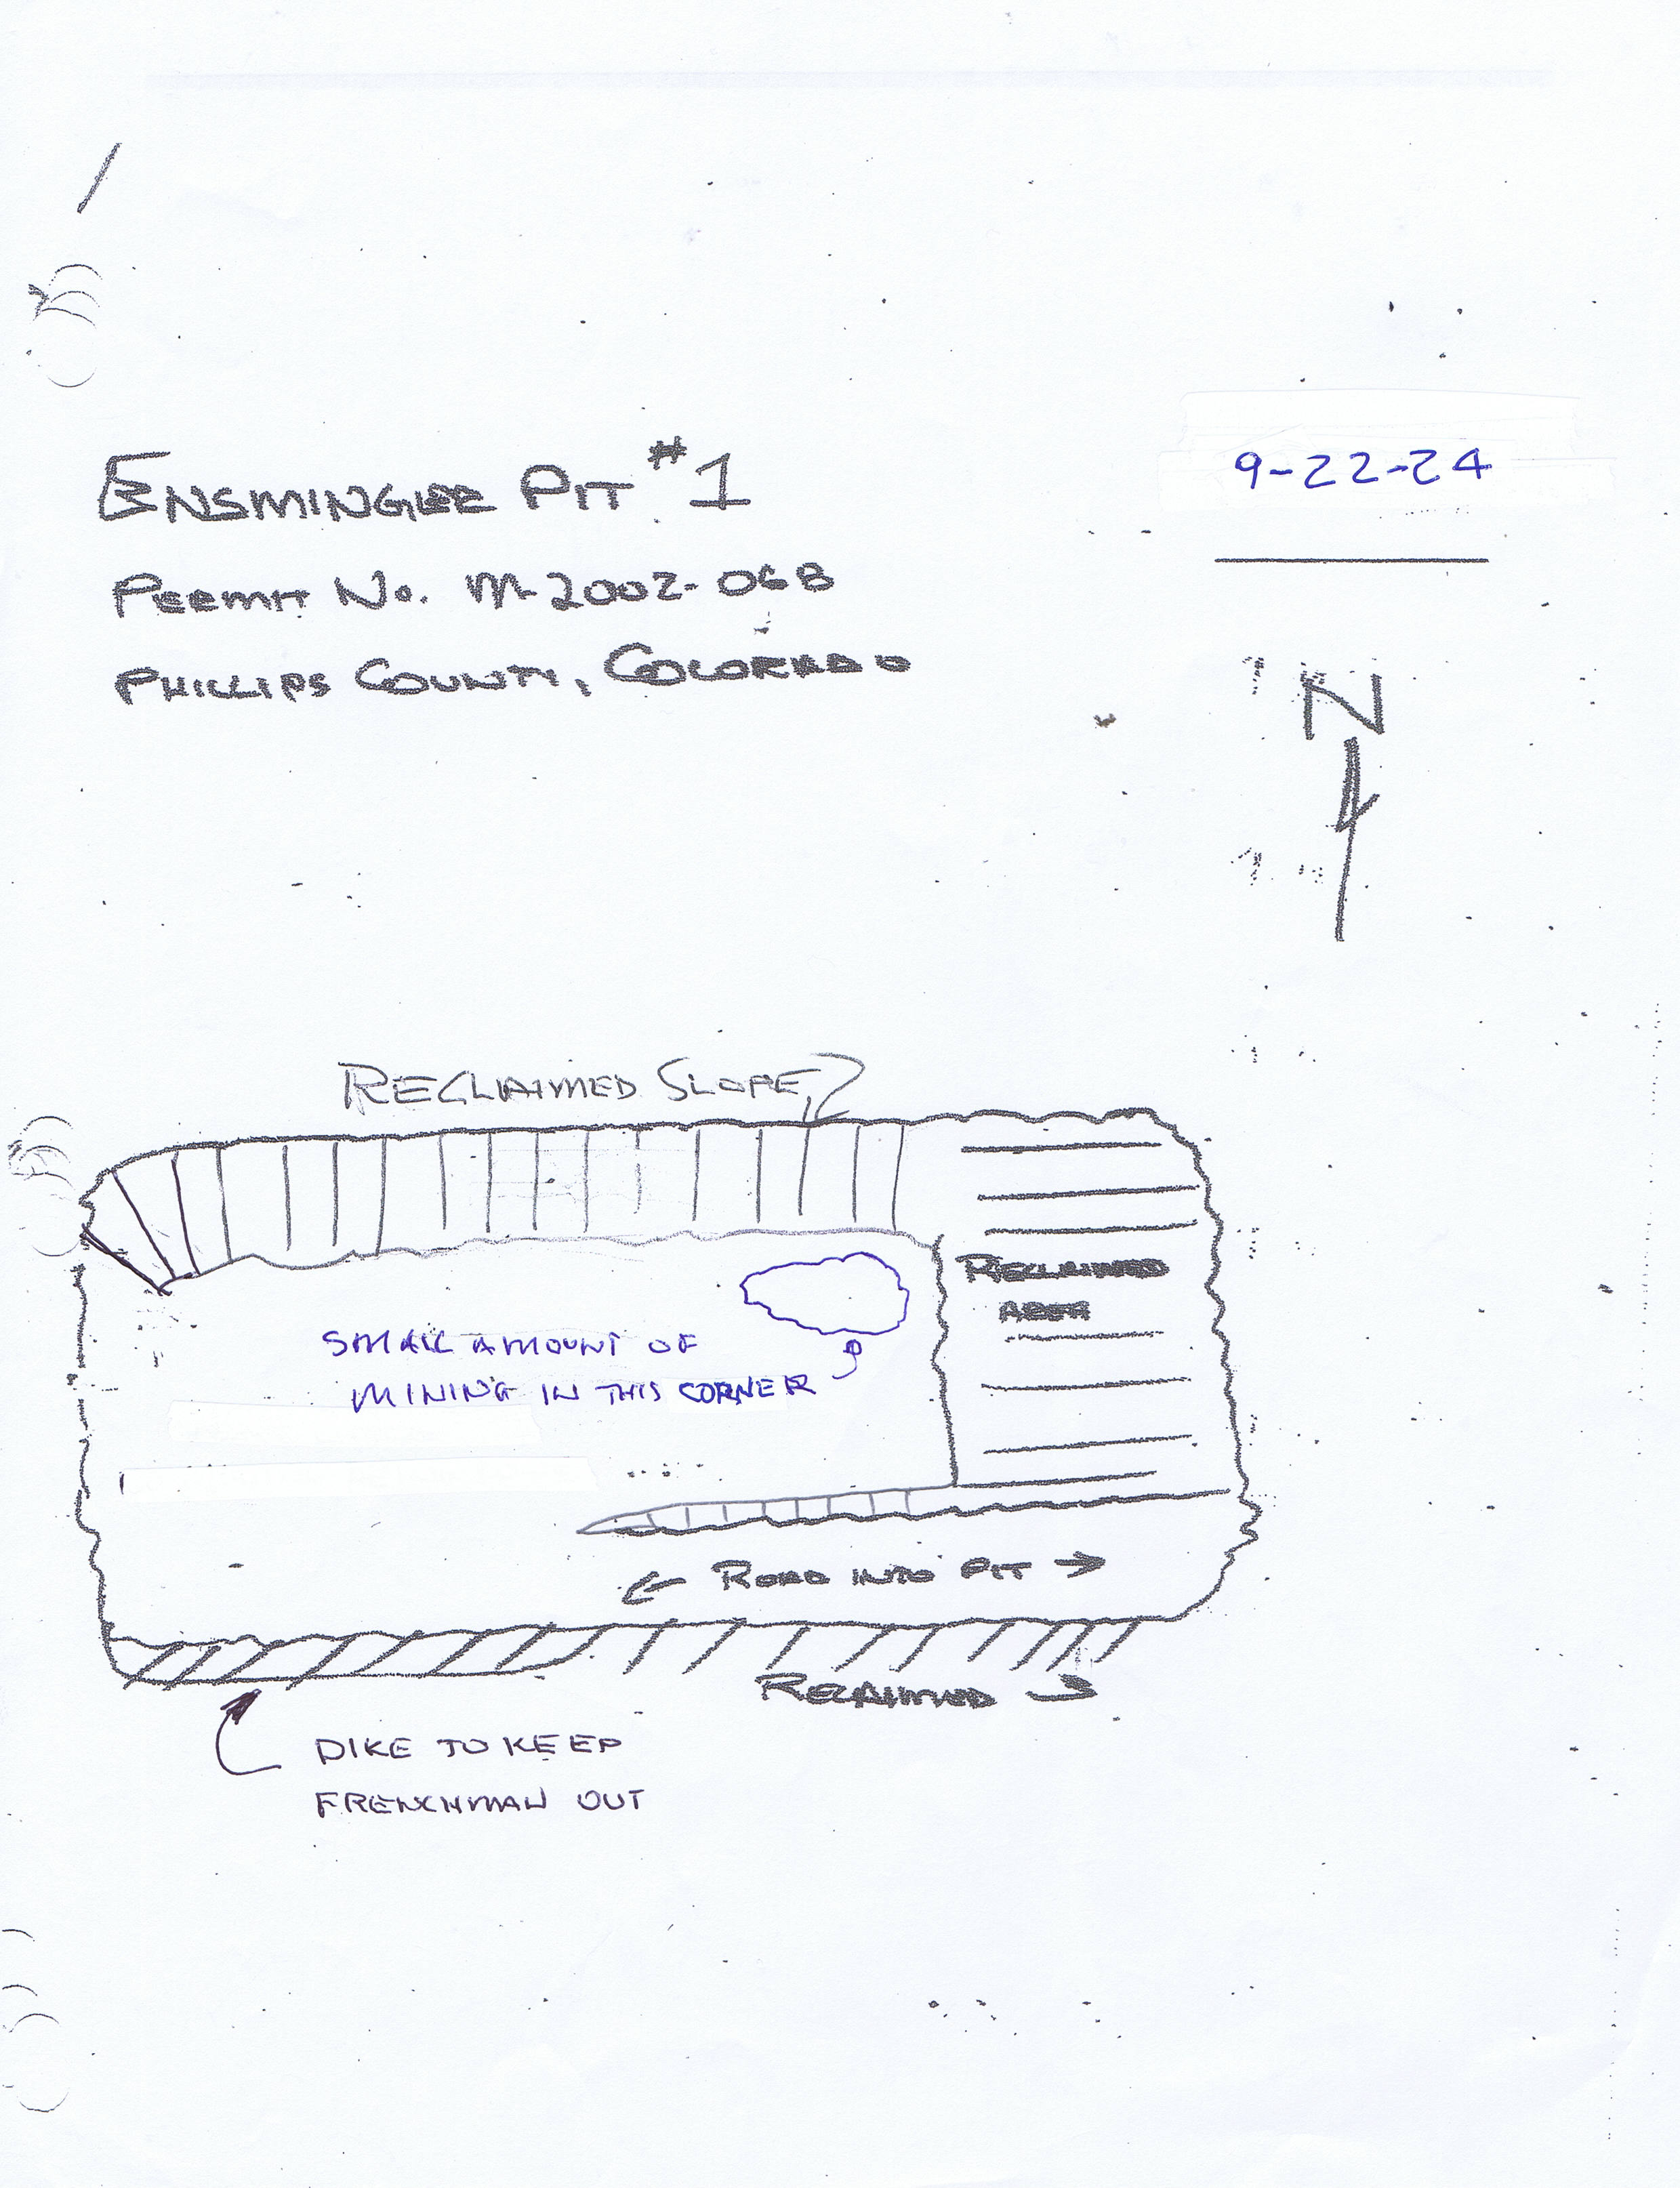 ENSMINGER PIT #1
9-22-24
PERMIT No. M-2002-068
PHILLIPS COUNTY, COLORADO
N
RECLAIMED SLOPE
RECLAIMED
AREA
SMALL AMOUNT OF
MINING IN THIS CORNER
← ROAD INTO PIT →
RECLAIMED
DIKE TO KEEP
FRENCHMAN OUT